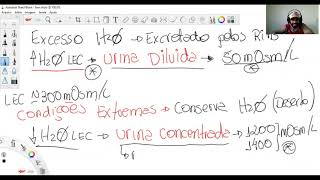 Excesso H2O → Excretado pelos Rins
↑H2O LEC → Urina Diluída → 50 mOsm/L
LEC ≈ 300 mOsm/L
Condições Extremas → Conserva H2O (Deserto)
↓H2O LEC → Urina Concentrada → 1200 mOsm/L
1400